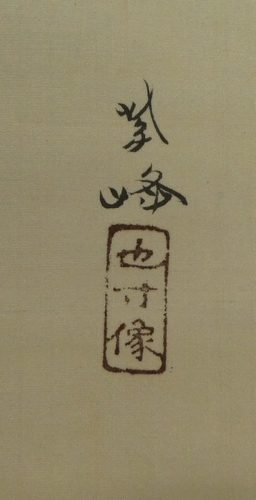 紫峰
也寸像